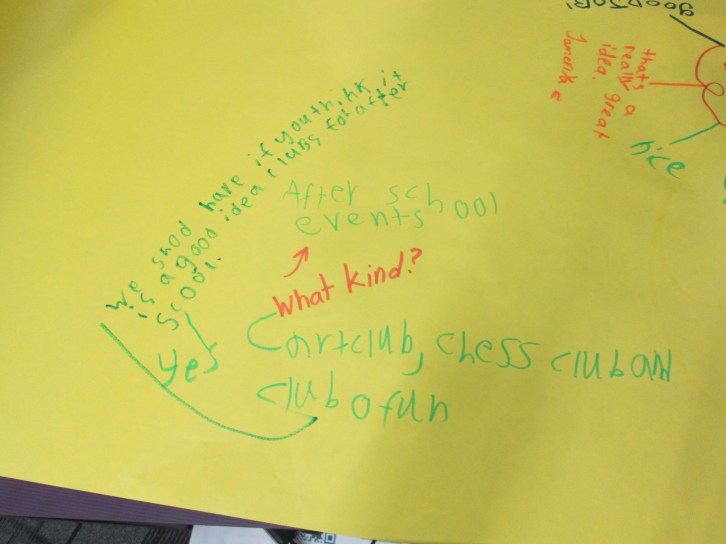 good JOB!
that's a
really great
idea.
Jamerika
nice
We shod have if you think it
is a good idea clubs for after
scool.
yes
After school
events
What kind?
artclub, chess club and
club ofun